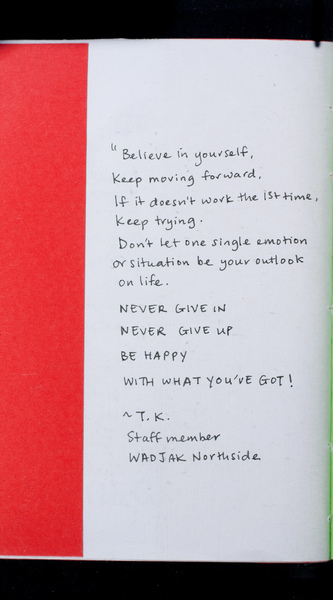 "Believe in yourself,
Keep moving forward,
If it doesn't work the 1st time,
Keep trying.
Don't let one single emotion
or situation be your outlook
on life.
NEVER GIVE IN
NEVER GIVE UP
BE HAPPY
WITH WHAT YOU'VE GOT!
~T.K.
Staff member
WADJAK Northside